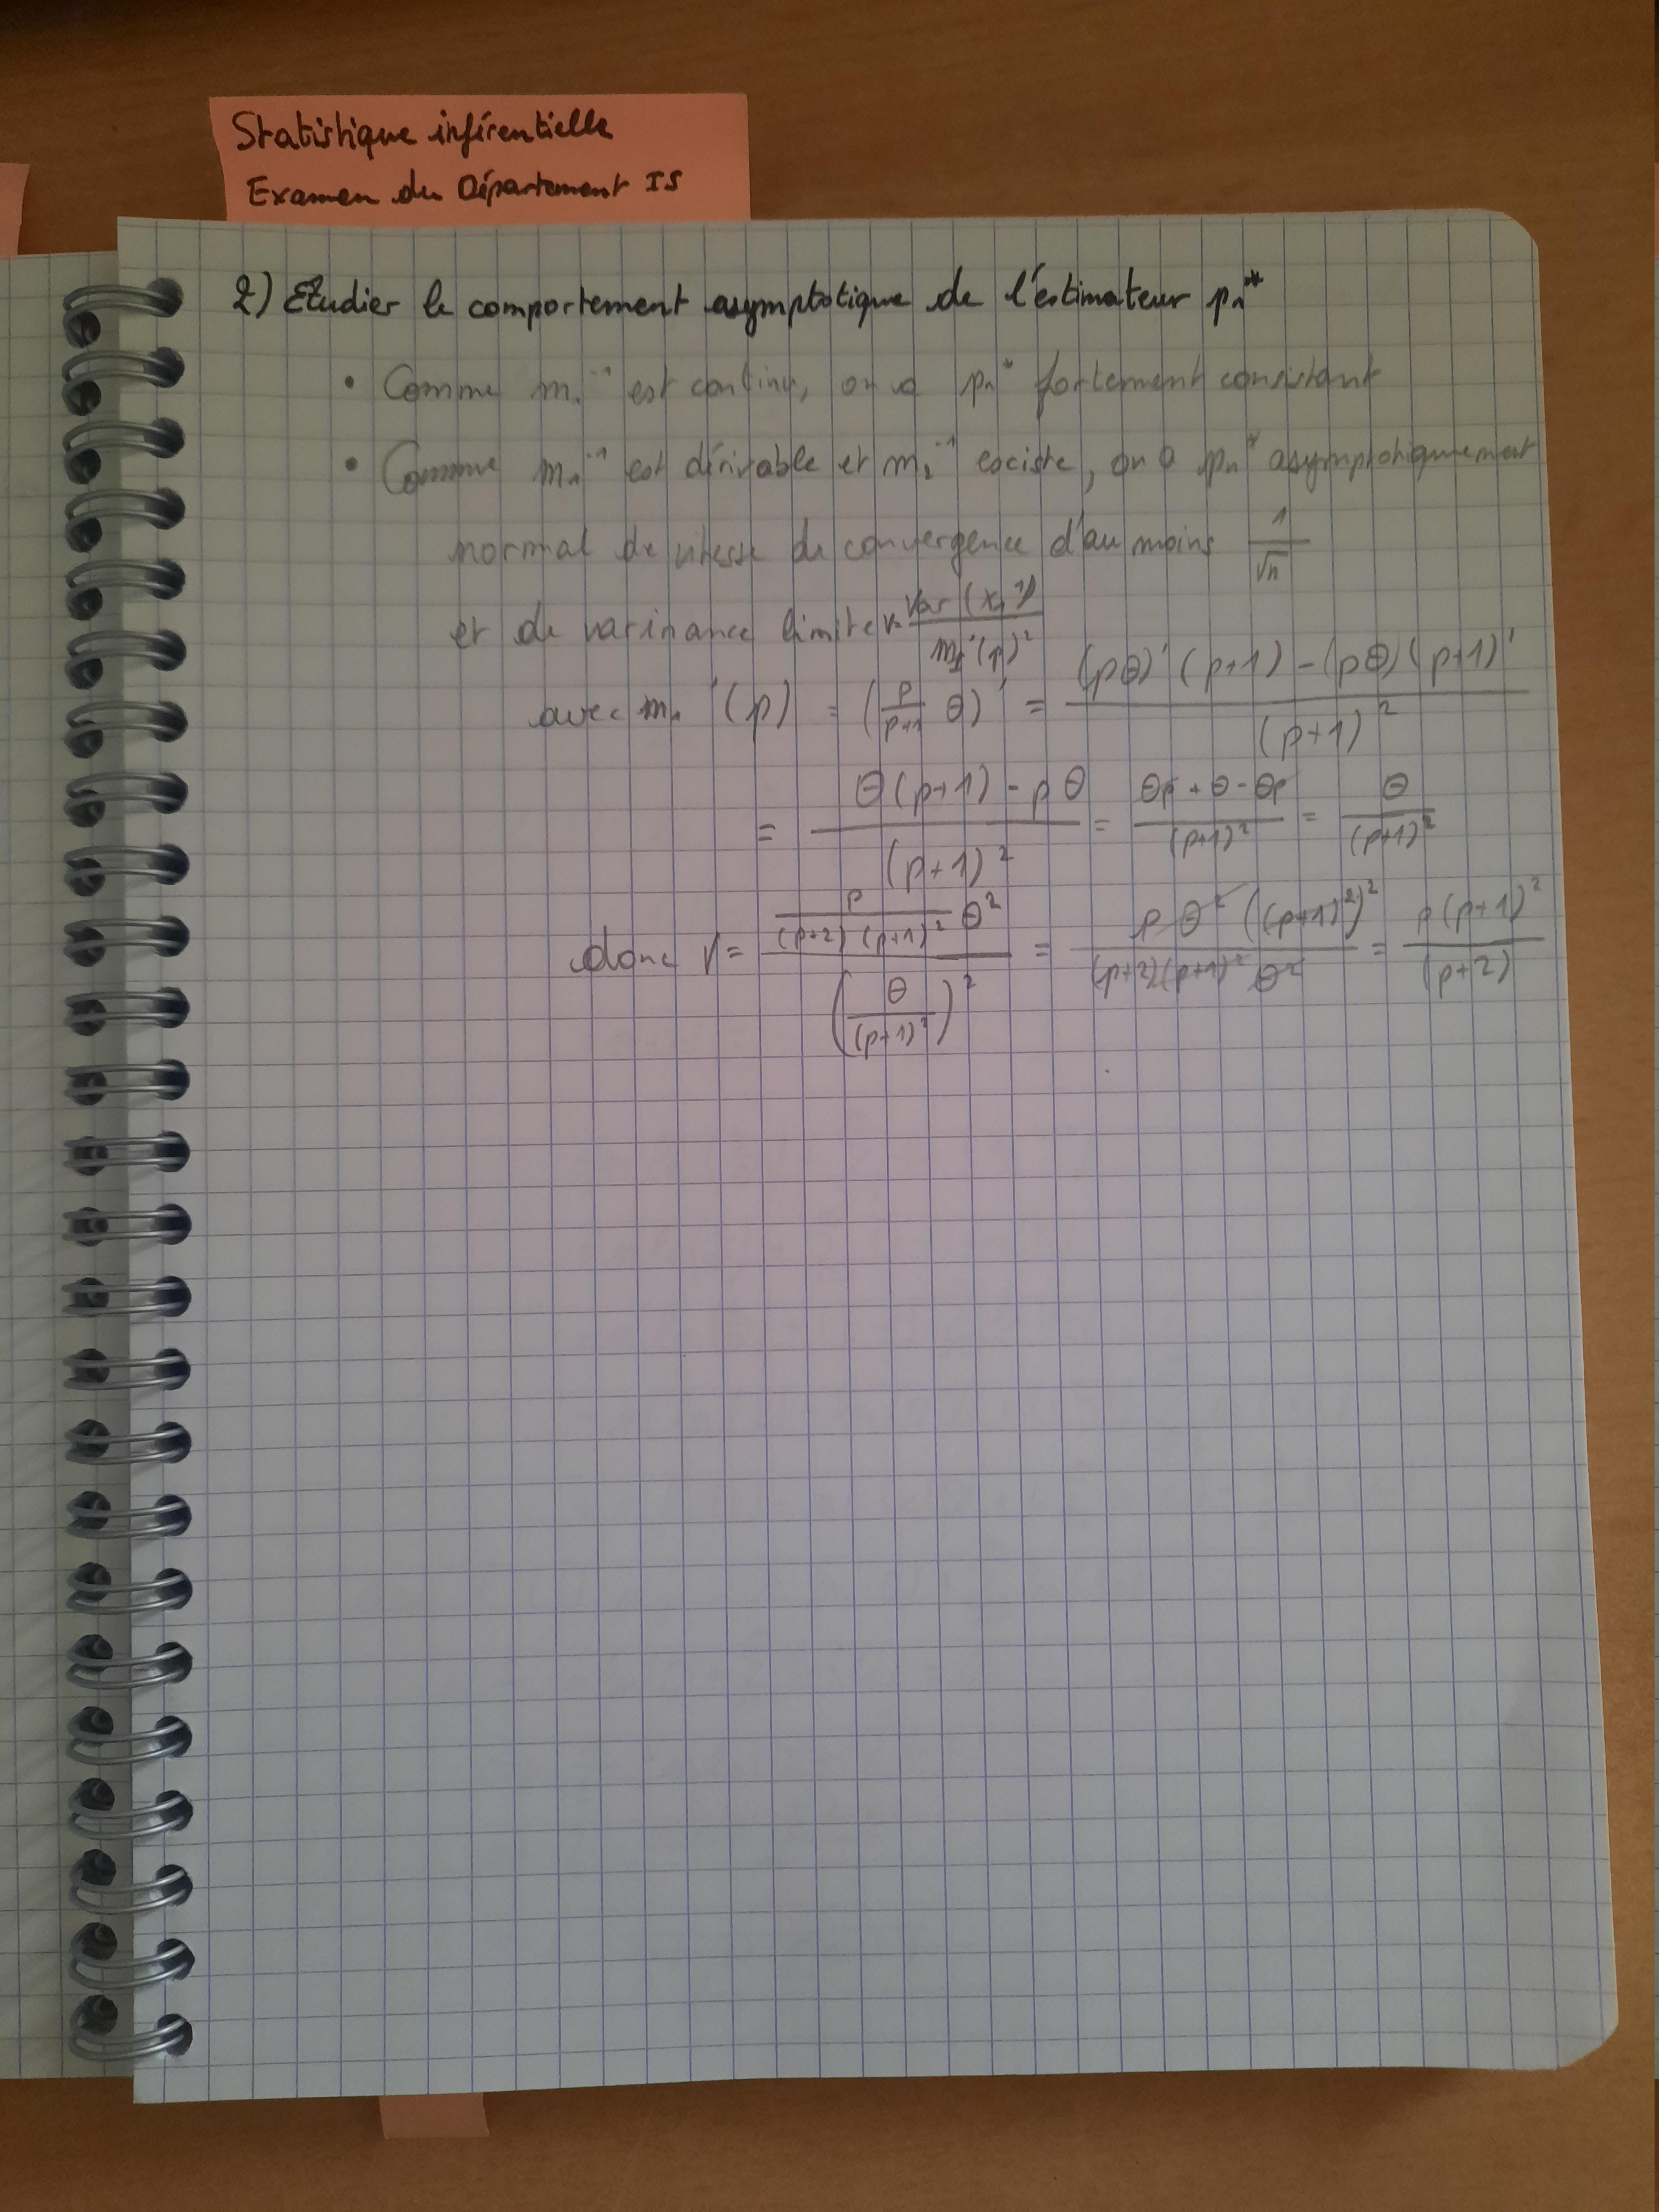 Statistique inférentielle
Examen du Département IS
2) Etudier le comportement asymptotique de l'estimateur pₙ*
• Comme m₁⁻¹ est continu, on a pₙ* fortement consistant
• Comme m₁⁻¹ est dérivable et m₂⁻¹ existe, on a pₙ* asymptotiquement
normal de vitesse de convergence d'au moins 1/√n
et de varinance limite v= Var(X₁¹)/m₁'(p)²
avec m₁'(p) = (p/(p+1) θ)' = ((pθ)'(p+1) - (pθ)(p+1)')/(p+1)²
= (θ(p+1) - pθ)/(p+1)² = (θp + θ - θp)/(p+1)² = θ/(p+1)²
donc V = (p/((p+2)(p+1)²) θ²)/(θ/(p+1)²)² = (pθ²((p+1)²)²)/((p+2)(p+1)²θ²) = p(p+1)²/(p+2)